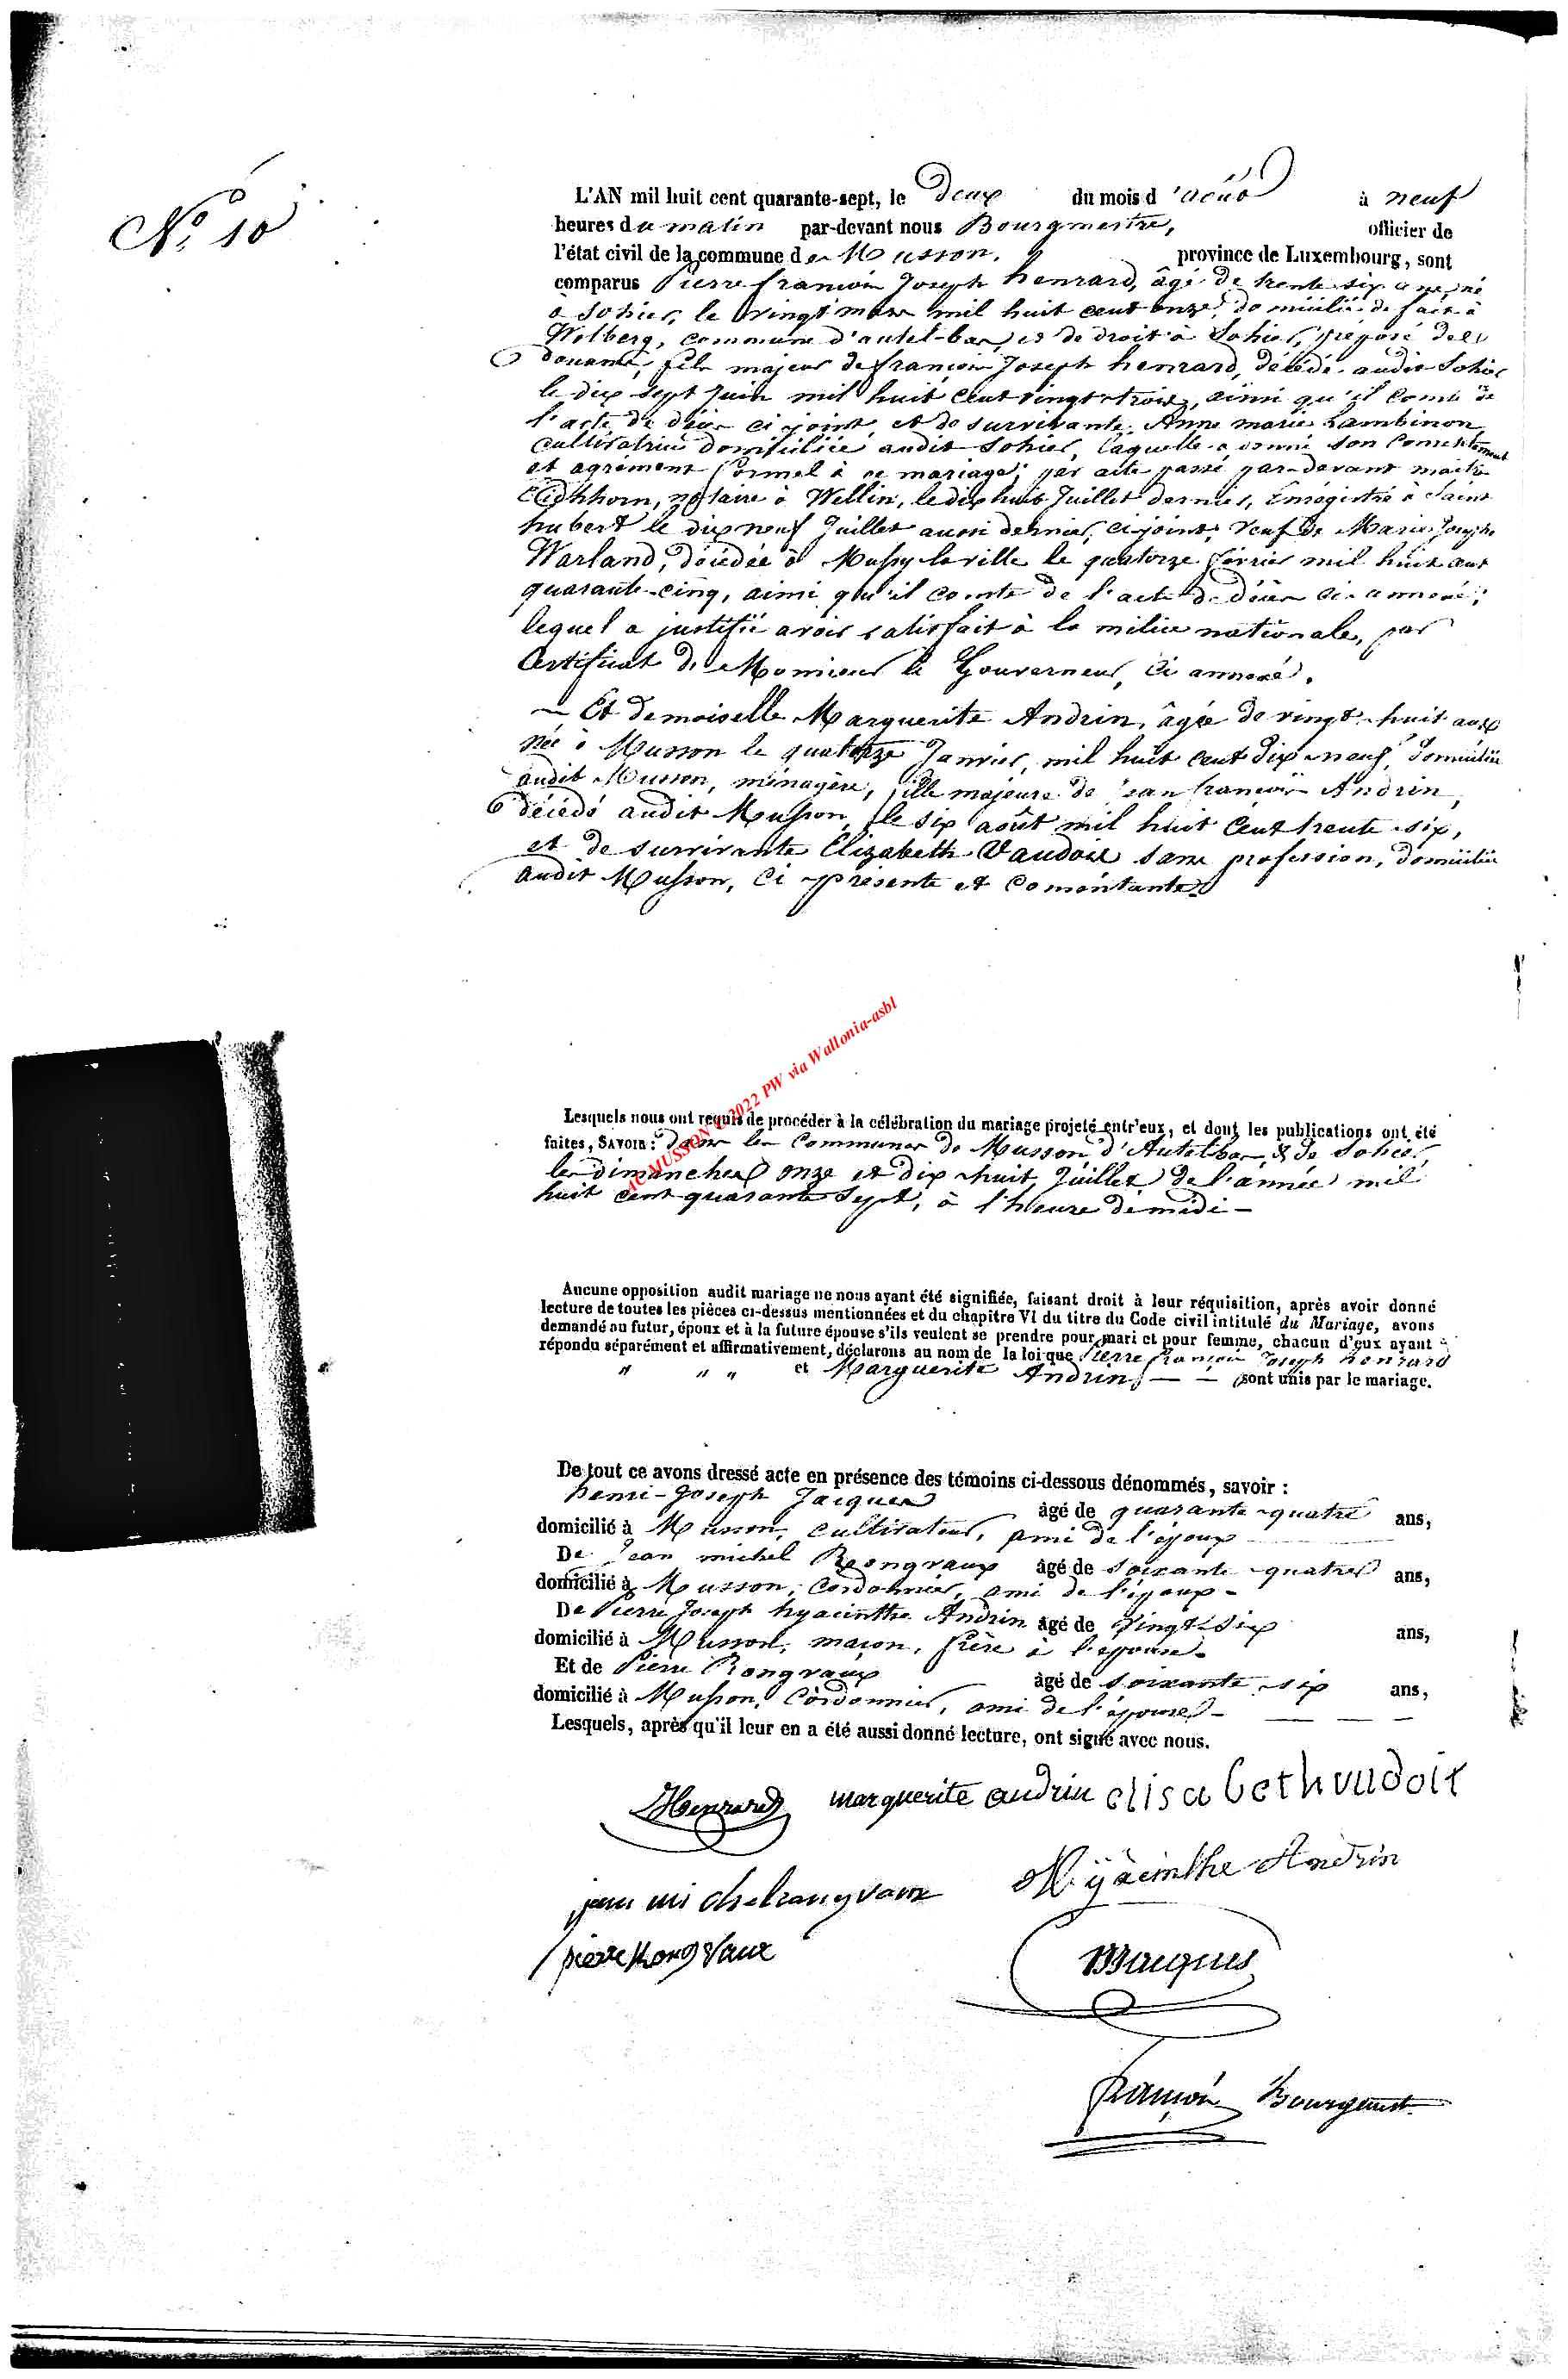 N.º 10
L'AN mil huit cent quarante-sept, le Deux du mois d'août à neuf
heures du matin par-devant nous Bourgmestre, officier de
l'état civil de la commune de Musson, province de Luxembourg, sont
comparus Pierre françois Joseph henrard, âgé de trente six ans, né
à Sohier, le vingt mars mil huit cent onze, domicilié de fait à
Wolberg, commune d'autel-bas, et de droit à Sohier, préposé des
douanes, fils majeur de françois Joseph henrard, décédé audit Sohier
le dix sept Juin mil huit cent vingt trois, ainsi qu'il conste de
l'acte de décès ci joint, et de survivante Anne marie Lambinon
cultivatrice domiciliée audit Sohier, laquelle a donné son consentement
et agrément formel à ce mariage, par acte passé par-devant maître
Eichhorn, notaire à Wellin, le dix huit Juillet dernier, Enregistré à Saint
hubert le dix neuf Juillet aussi dernier, ci joint; veuf de Marie Joseph
Warland, décédée à Mussy la ville le quatorze février mil huit cent
quarante-cinq, ainsi qu'il conste de l'acte de décès ci-annexé;
lequel a justifié avoir satisfait à la milice nationale, par
Certificat de Monsieur le Gouverneur, ci annexé.
— Et demoiselle Marguerite Andrin, âgée de vingt-huit ans
née à Musson le quatorze Janvier, mil huit cent dix-neuf, domiciliée
audit Musson, ménagère, fille majeure de Jean françois Andrin,
décédé audit Musson, le six août mil huit cent trente-six,
et de survivante Elizabeth Vaudoit sans profession, domiciliée
audit Musson, ci présente et consentante.
AC MUSSON 2022 PW via Wallonia-asbl
Lesquels nous ont requis de procéder à la célébration du mariage projeté entr'eux, et dont les publications ont été
faites, SAVOIR: dans les Communes de Musson d'Autelbas, & de Sohier
les dimanches onze et dix-huit Juillet de l'année mil
huit cent quarante sept, à l'heure de midi —
Aucune opposition audit mariage ne nous ayant été signifiée, faisant droit à leur réquisition, après avoir donné
lecture de toutes les pièces ci-dessus mentionnées et du chapitre VI du titre du Code civil intitulé du Mariage, avons
demandé au futur, époux et à la future épouse s'ils veulent se prendre pour mari et pour femme, chacun d'eux ayant
répondu séparément et affirmativement, déclarons au nom de la loi que Pierre françois Joseph henrard
" " " et Marguerite Andrin, — — sont unis par le mariage.
De tout ce avons dressé acte en présence des témoins ci-dessous dénommés, savoir :
henri-Joseph Jacques âgé de quarante-quatre ans,
domicilié à Musson, cultivateur, ami de l'époux
De Jean michel Rongvaux âgé de soixante-quatre ans,
domicilié à Musson, Cordonnier, ami de l'époux -
De Pierre Joseph hyacinthe Andrin âgé de vingt-six ans,
domicilié à Musson, maçon, frère à l'épouse -
Et de Pierre Rongvaux âgé de soixante six ans,
domicilié à Musson, Cordonnier, ami de l'épouse - — — —
Lesquels, après qu'il leur en a été aussi donné lecture, ont signé avec nous.
Henrard marguerite andrin elisabeth vudoit
jean michel rongvaux Hyacinthe Andrin
pierre Rongvaux Jacques
françois Bourgmest